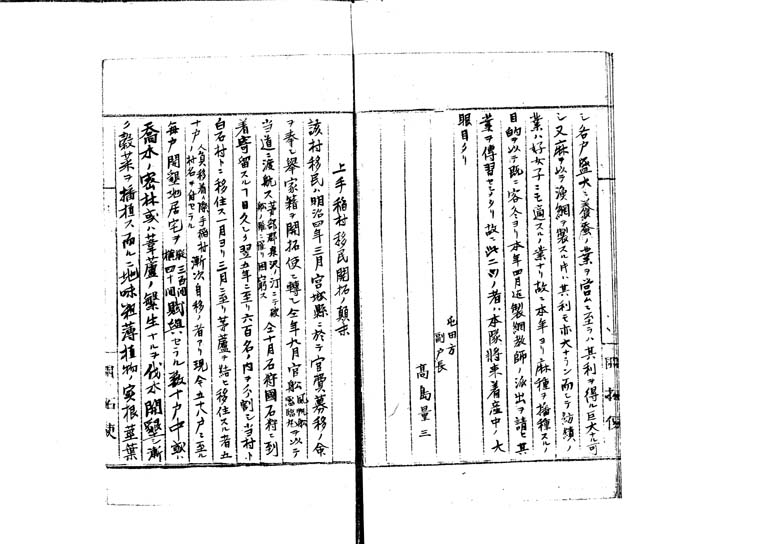 シ各戸盛大ニ養蚕ノ業ヲ営ムニ至ラハ其利ヲ得ル巨大ナル可
シ又麻ヲ以テ漁網ヲ製スル片ハ其利モ亦大ナラン而シテ紡績ノ
業ハ好女子ニモ適スルノ業ナリ故ニ本年ヨリ麻種ヲ播種スルノ
目的ヲ以テ既ニ客冬ヨリ本年四月迄製網教師ノ派出ヲ請ヒ其
業ヲ傳習セシメタリ故ニ此二ツノ者ハ本隊将来着産中ノ大
眼目タリ
屯田方
副戸長
高島量三
上手稲村移民開拓ノ顛末
該村移民ハ明治四年三月宮城縣ニ於テ官費募移ノ命
ヲ奉シ挙家籍ヲ開拓使ニ轉シ仝年九月官舩咸臨丸ヲ以テ
当道ニ渡航ス 仝十月石狩國石狩ニ到
着寄留スル丁日久シ翌五年ニ至リ六百名ノ内ヲ分割シ当村ト
白石村トニ移住ス一月ヨリ三月ニ至リ茅蘆ヲ結ヒ移住スル者五
十戸 人員移着ノ際手稲村ノ村名ヲ付セラル 漸次自移ノ者アリ現今五十八戸ニ至ル
毎戸開墾地居宅ヲ 縦三百間横四十間 賦與セラル数十戸ノ中或ハ
喬木ノ密林或ハ葦蘆ノ繁生ナルヲ伐木開墾シ漸
ク穀菜ヲ播植ス而ルニ地味粗薄植物ノ実根茎葉
開拓使
開拓使